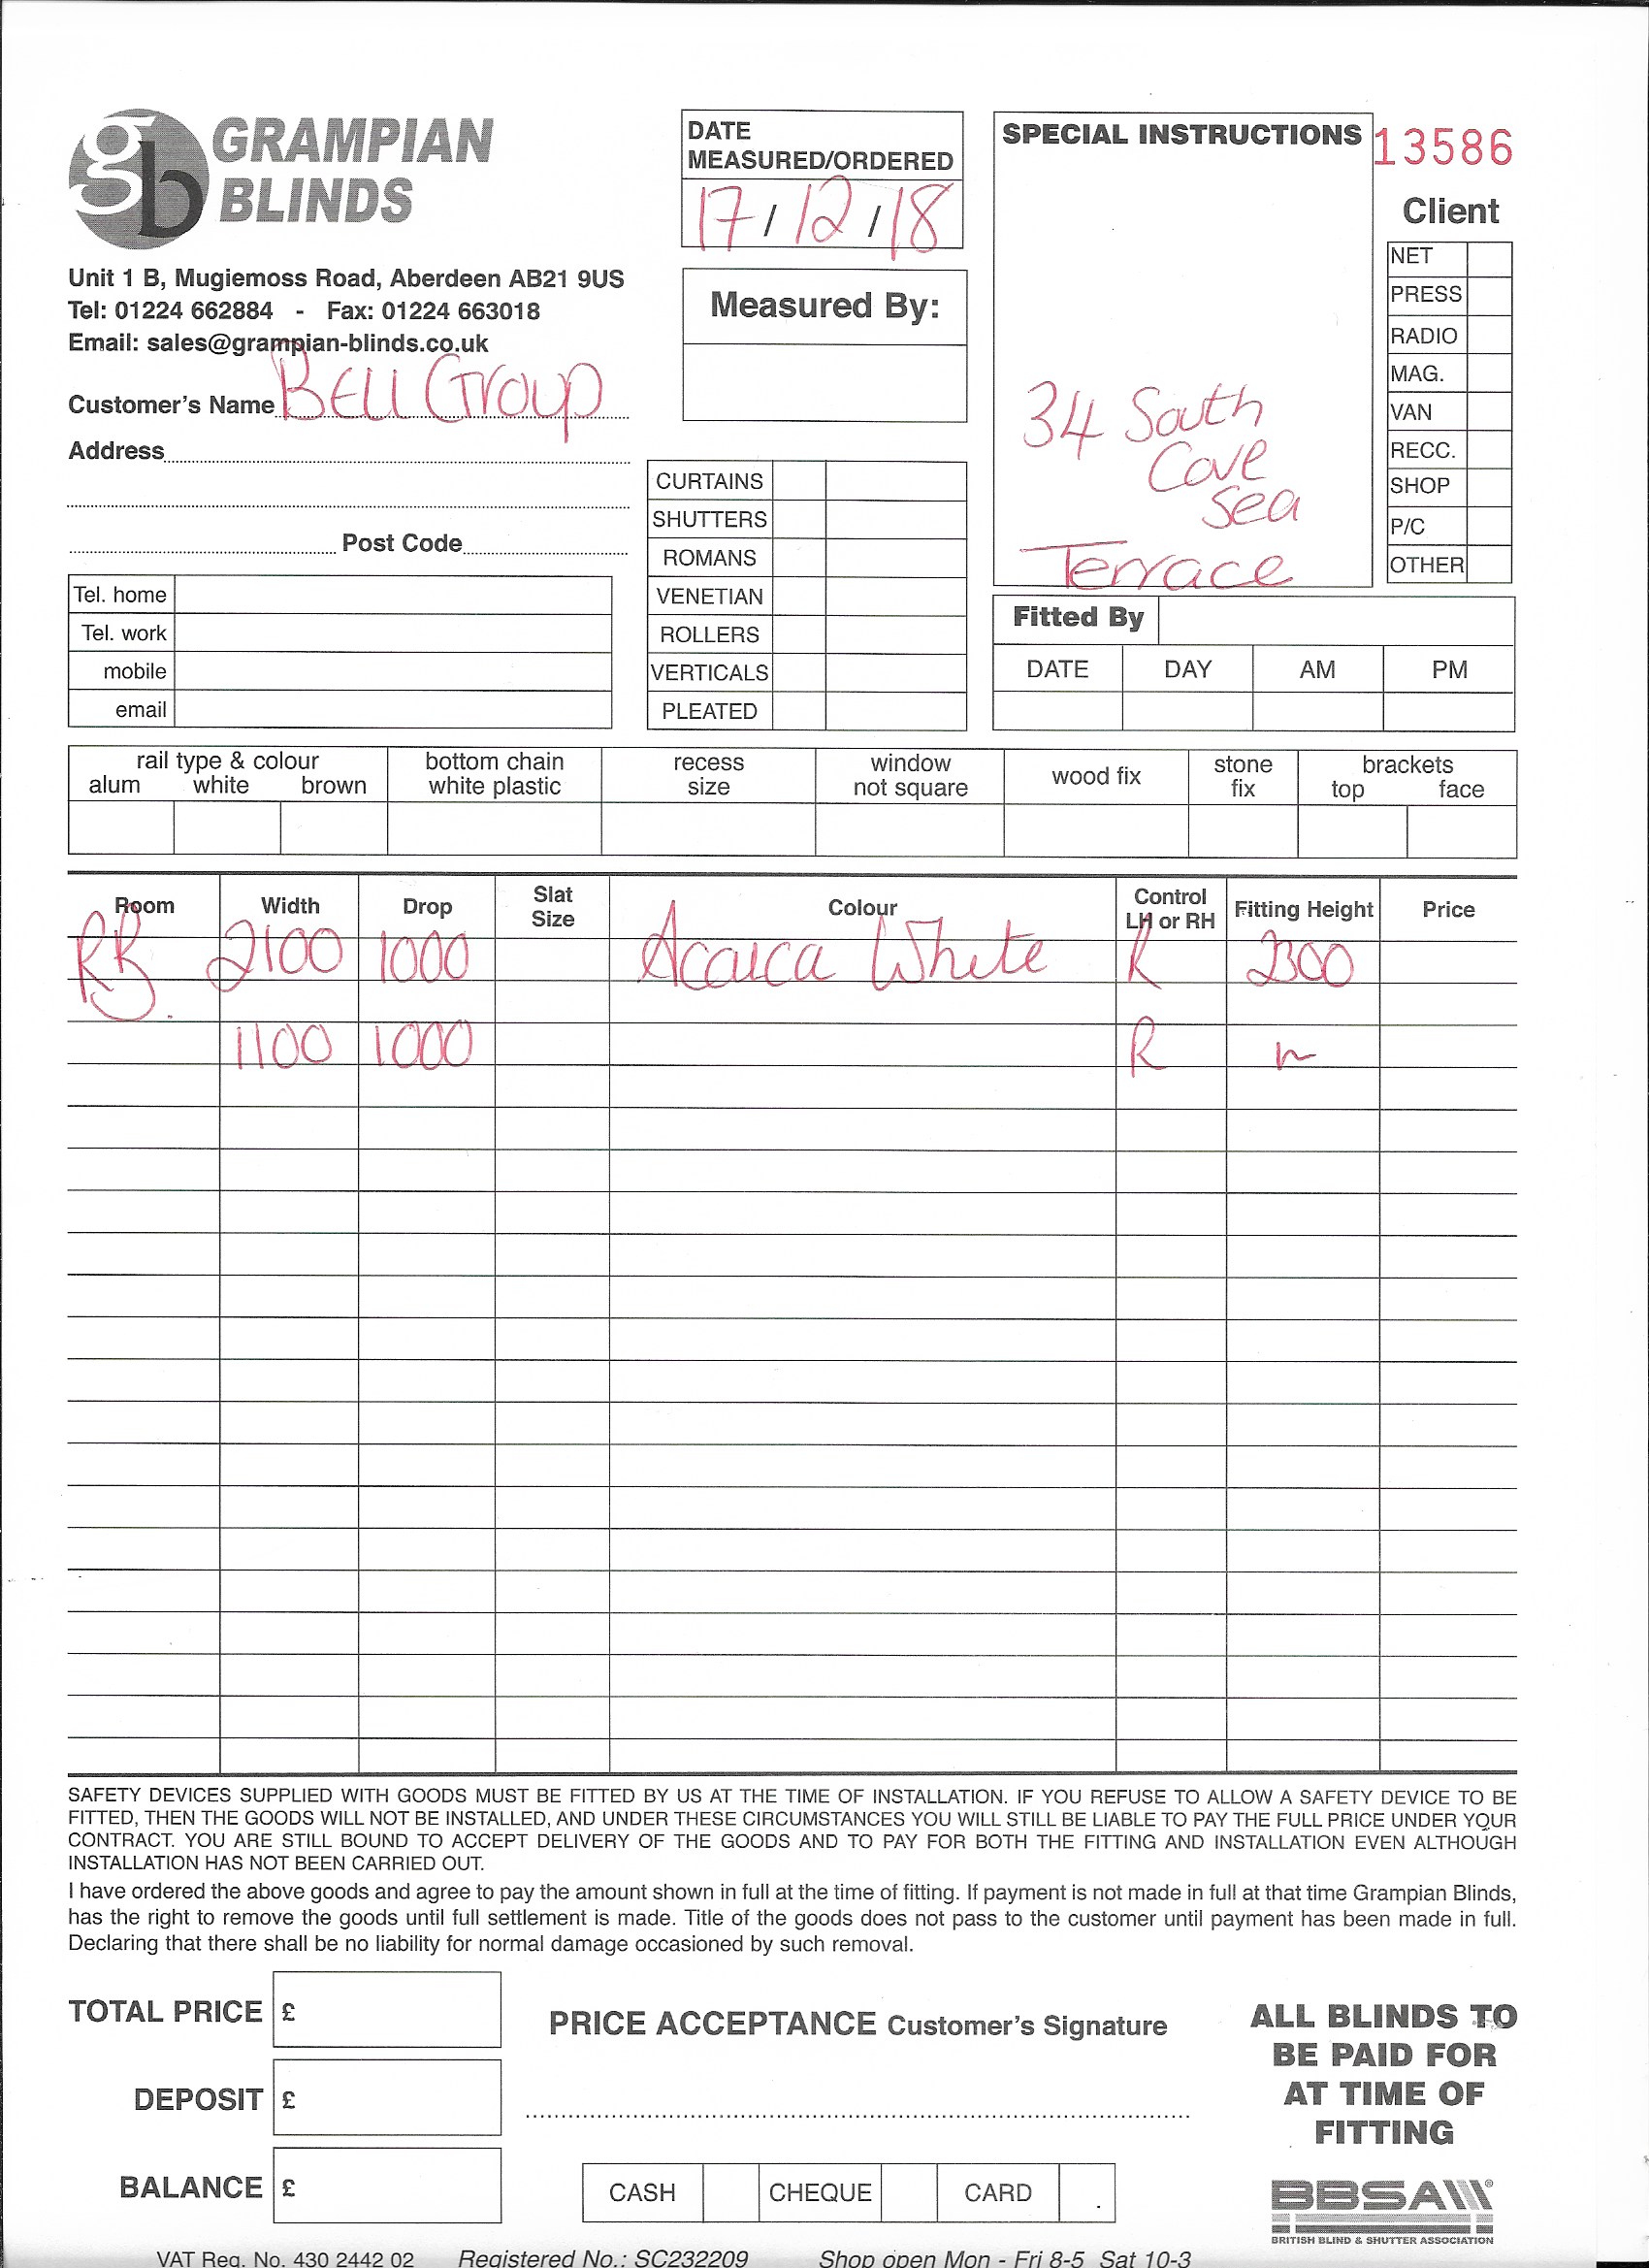 gb GRAMPIAN
BLINDS
Unit 1 B, Mugiemoss Road, Aberdeen AB21 9US
Tel: 01224 662884 - Fax: 01224 663018
Email: sales@grampian-blinds.co.uk
Customer's Name Bell Group
Address
Post Code
Tel. home
Tel. work
mobile
email
DATE
MEASURED/ORDERED
17/12/18
Measured By:
CURTAINS
SHUTTERS
ROMANS
VENETIAN
ROLLERS
VERTICALS
PLEATED
SPECIAL INSTRUCTIONS
34 South
Cove
Sea
Terrace
13586
Client
NET
PRESS
RADIO
MAG.
VAN
RECC.
SHOP
P/C
OTHER
Fitted By
DATE DAY AM PM
rail type & colour
alum white brown
bottom chain
white plastic
recess
size
window
not square
wood fix
stone
fix
brackets
top face
Room Width Drop Slat Size Colour Control LH or RH Fitting Height Price
RB. 2100 1000 Acaica White R 2300
1100 1000 R
SAFETY DEVICES SUPPLIED WITH GOODS MUST BE FITTED BY US AT THE TIME OF INSTALLATION. IF YOU REFUSE TO ALLOW A SAFETY DEVICE TO BE
FITTED, THEN THE GOODS WILL NOT BE INSTALLED, AND UNDER THESE CIRCUMSTANCES YOU WILL STILL BE LIABLE TO PAY THE FULL PRICE UNDER YOUR
CONTRACT. YOU ARE STILL BOUND TO ACCEPT DELIVERY OF THE GOODS AND TO PAY FOR BOTH THE FITTING AND INSTALLATION EVEN ALTHOUGH
INSTALLATION HAS NOT BEEN CARRIED OUT.
I have ordered the above goods and agree to pay the amount shown in full at the time of fitting. If payment is not made in full at that time Grampian Blinds,
has the right to remove the goods until full settlement is made. Title of the goods does not pass to the customer until payment has been made in full.
Declaring that there shall be no liability for normal damage occasioned by such removal.
TOTAL PRICE £
DEPOSIT £
BALANCE £
PRICE ACCEPTANCE Customer's Signature
CASH CHEQUE CARD
ALL BLINDS TO
BE PAID FOR
AT TIME OF
FITTING
BBSA
BRITISH BLIND & SHUTTER ASSOCIATION
VAT Reg. No. 430 2442 02 Registered No.: SC232209 Shop open Mon - Fri 8-5 Sat 10-3